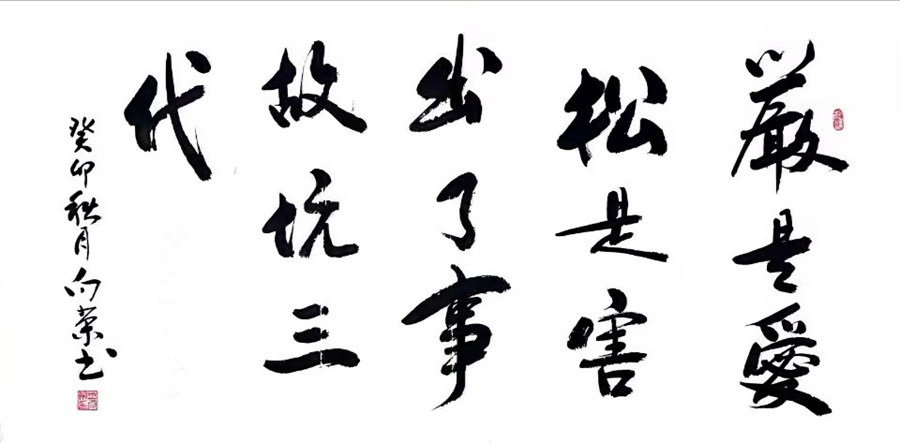 嚴是愛
松是害
出了事
故坑三
代
癸卯秋月向荣书